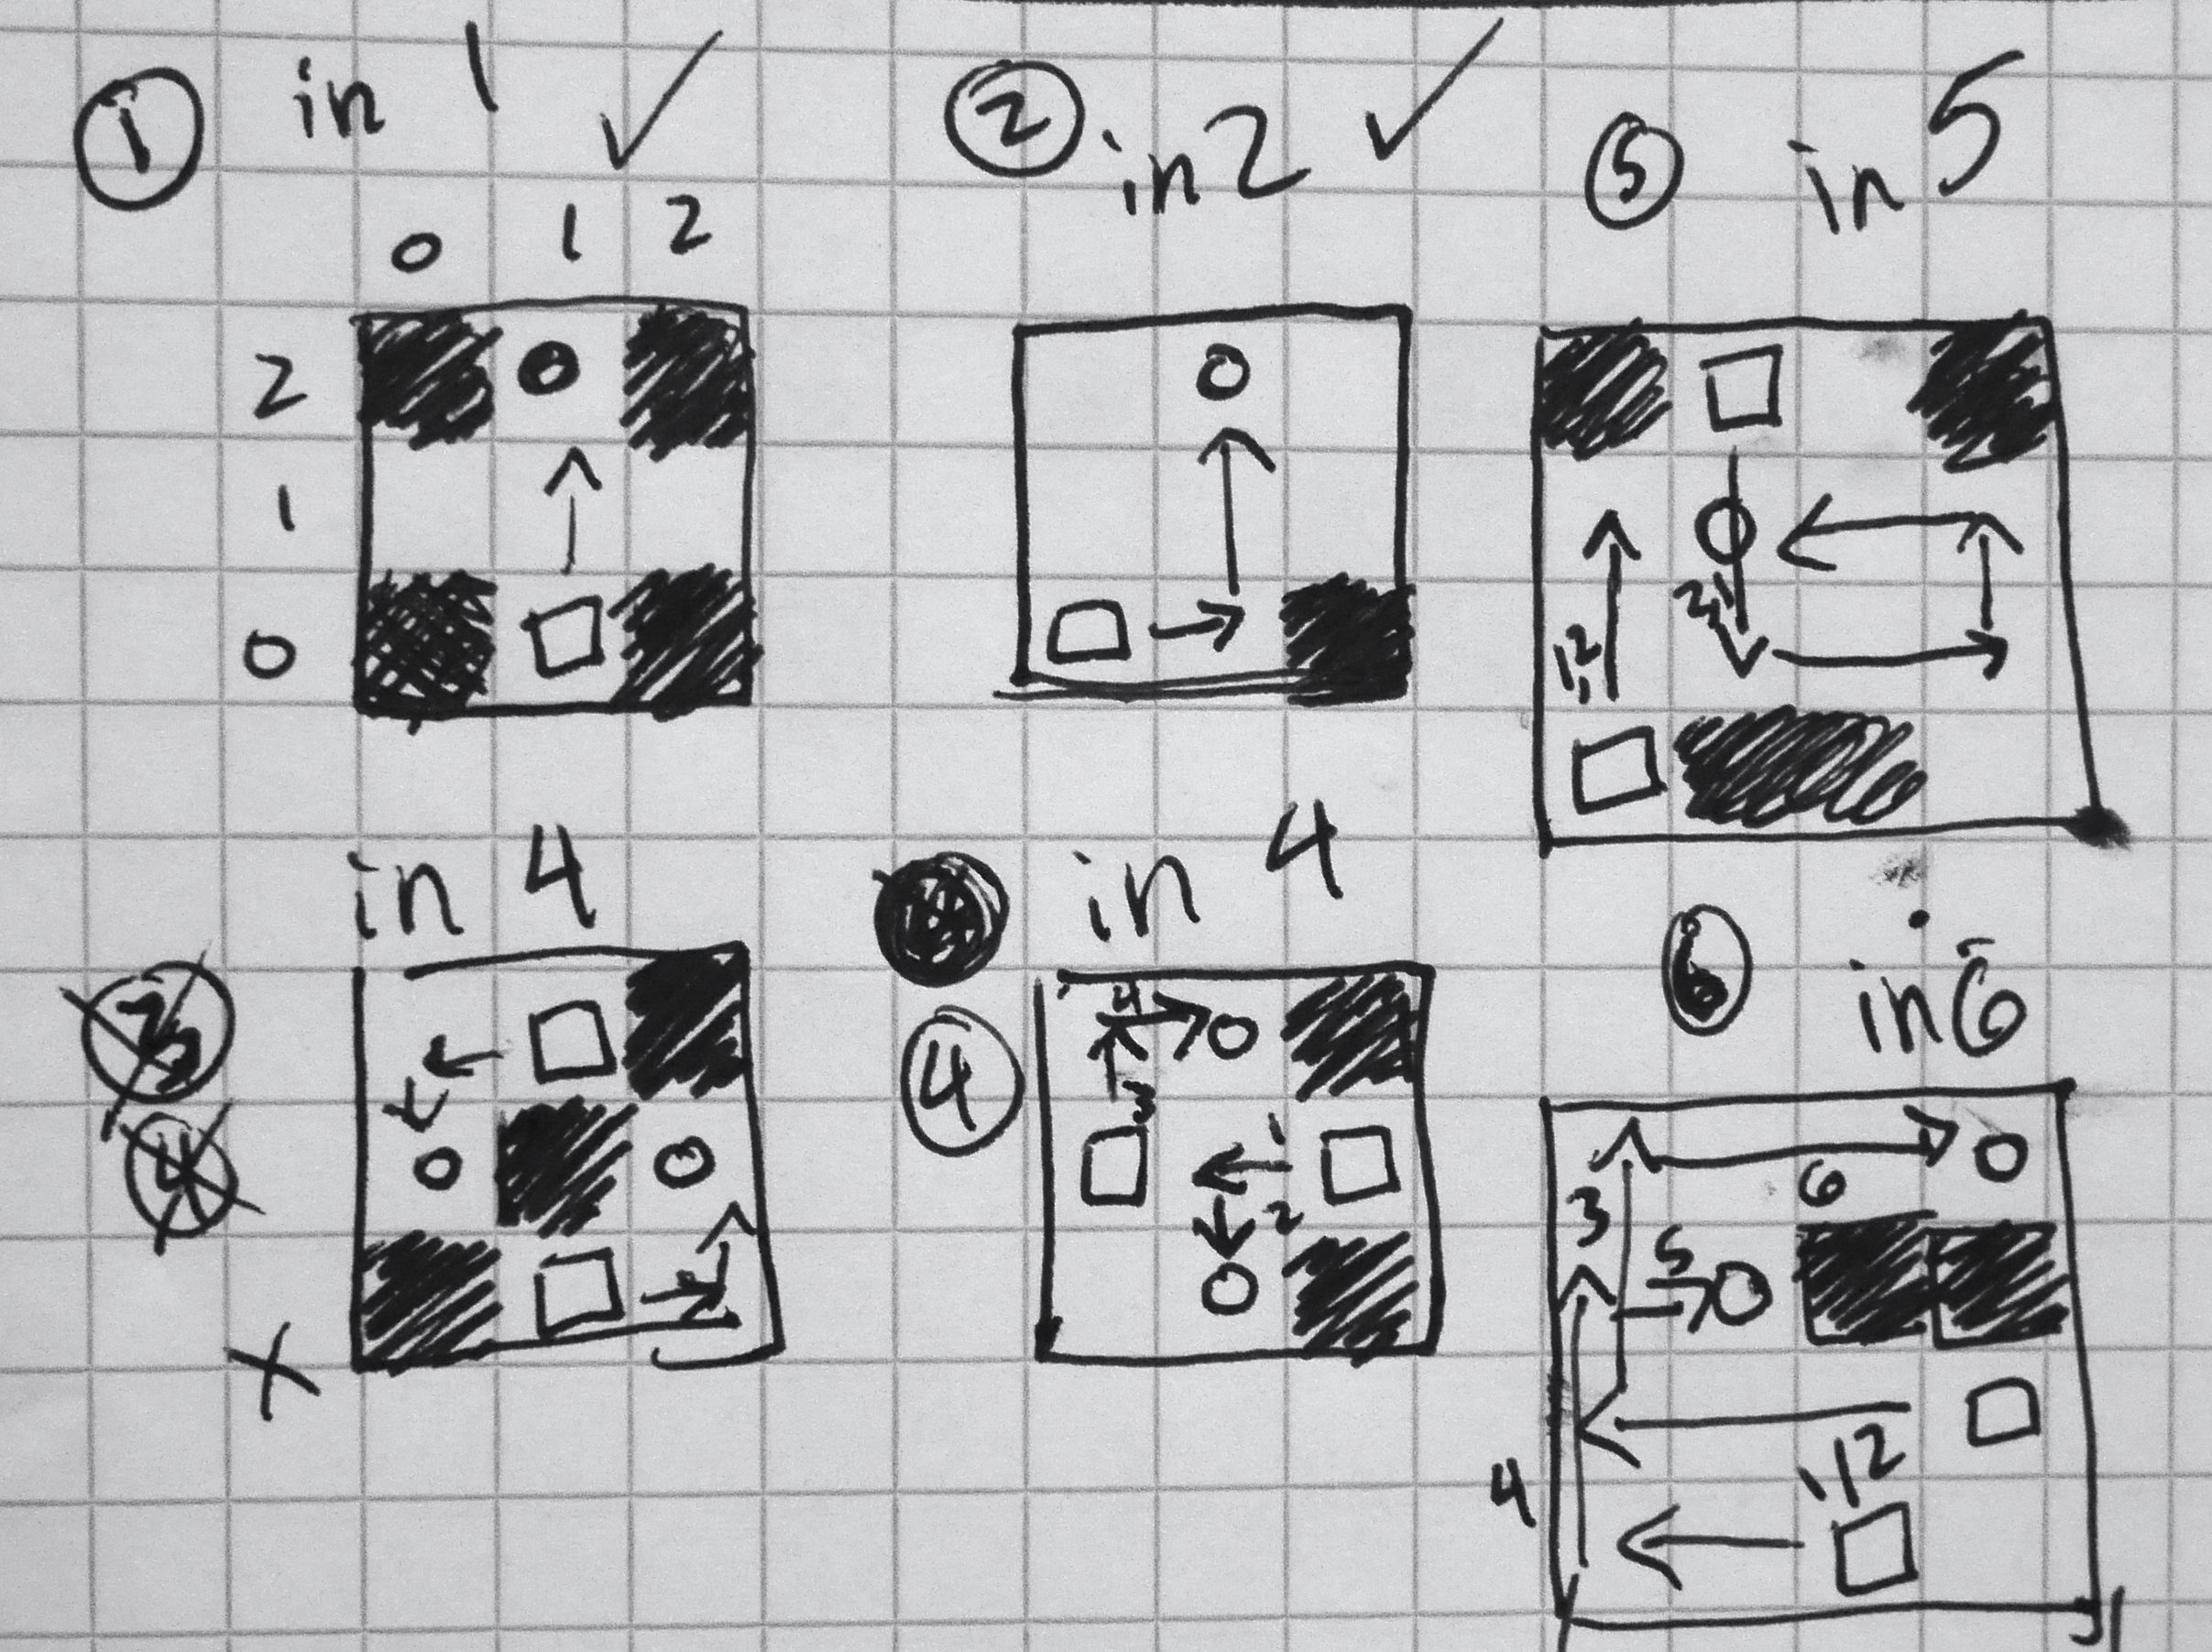 1 in 1 ✓
0 1 2
2
1
0
2 in 2 ✓
5 in 5
1,2
3,4
in 4
3
4
X
in 4
4
4
3
1
2
6 in 6
3
6
5
4
1,2